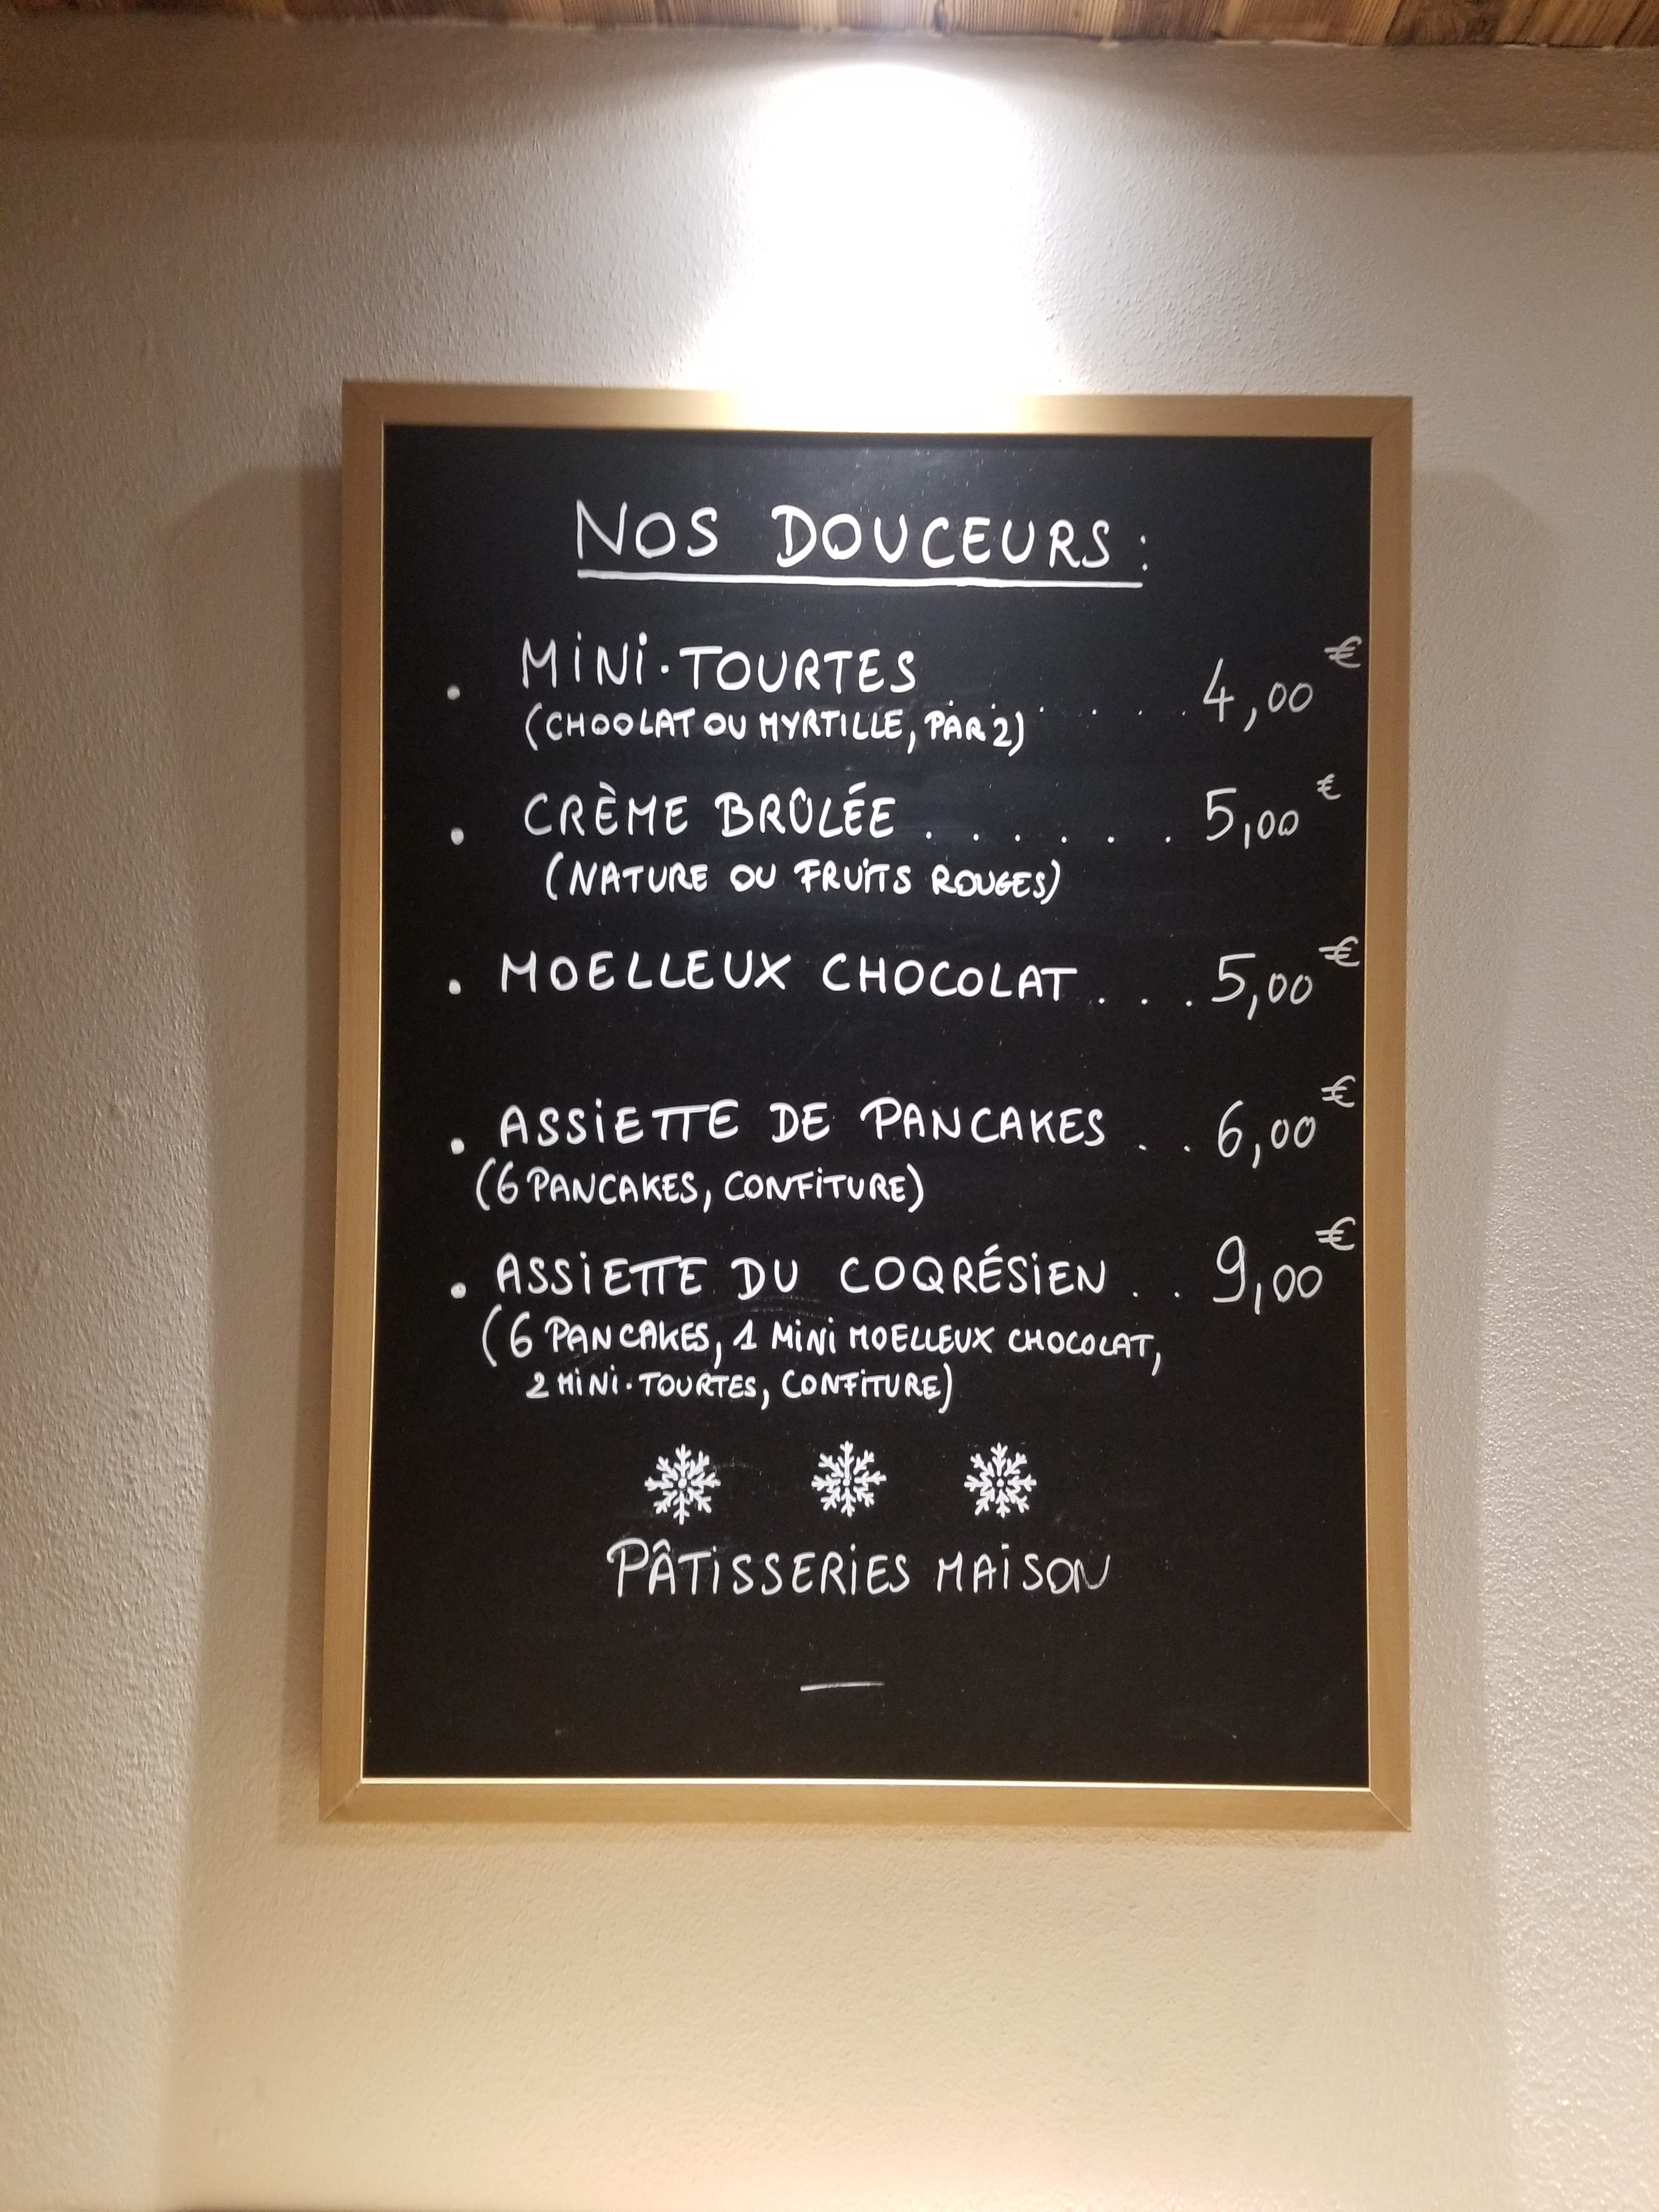 NOS DOUCEURS :
. MiNi·TOURTES
(CHOOLAT OU MYRTILLE, PAR 2) . . . . . 4,00 €
. CRÈME BRÛLÉE . . . . . . 5,00 €
(NATURE OU FRUiTS ROUGES)
. MOELLEUX CHOCOLAT . . . 5,00 €
. ASSiETTE DE PANCAKES . . 6,00 €
(6 PANCAKES, CONFiTURE)
. ASSiETTE DU COQRÉSiEN . . 9,00 €
(6 PANCAKES, 1 MiNi MOELLEUX CHOCOLAT,
2 MiNi·TOURTES, CONFiTURE)
PÂTiSSERiES MAiSON